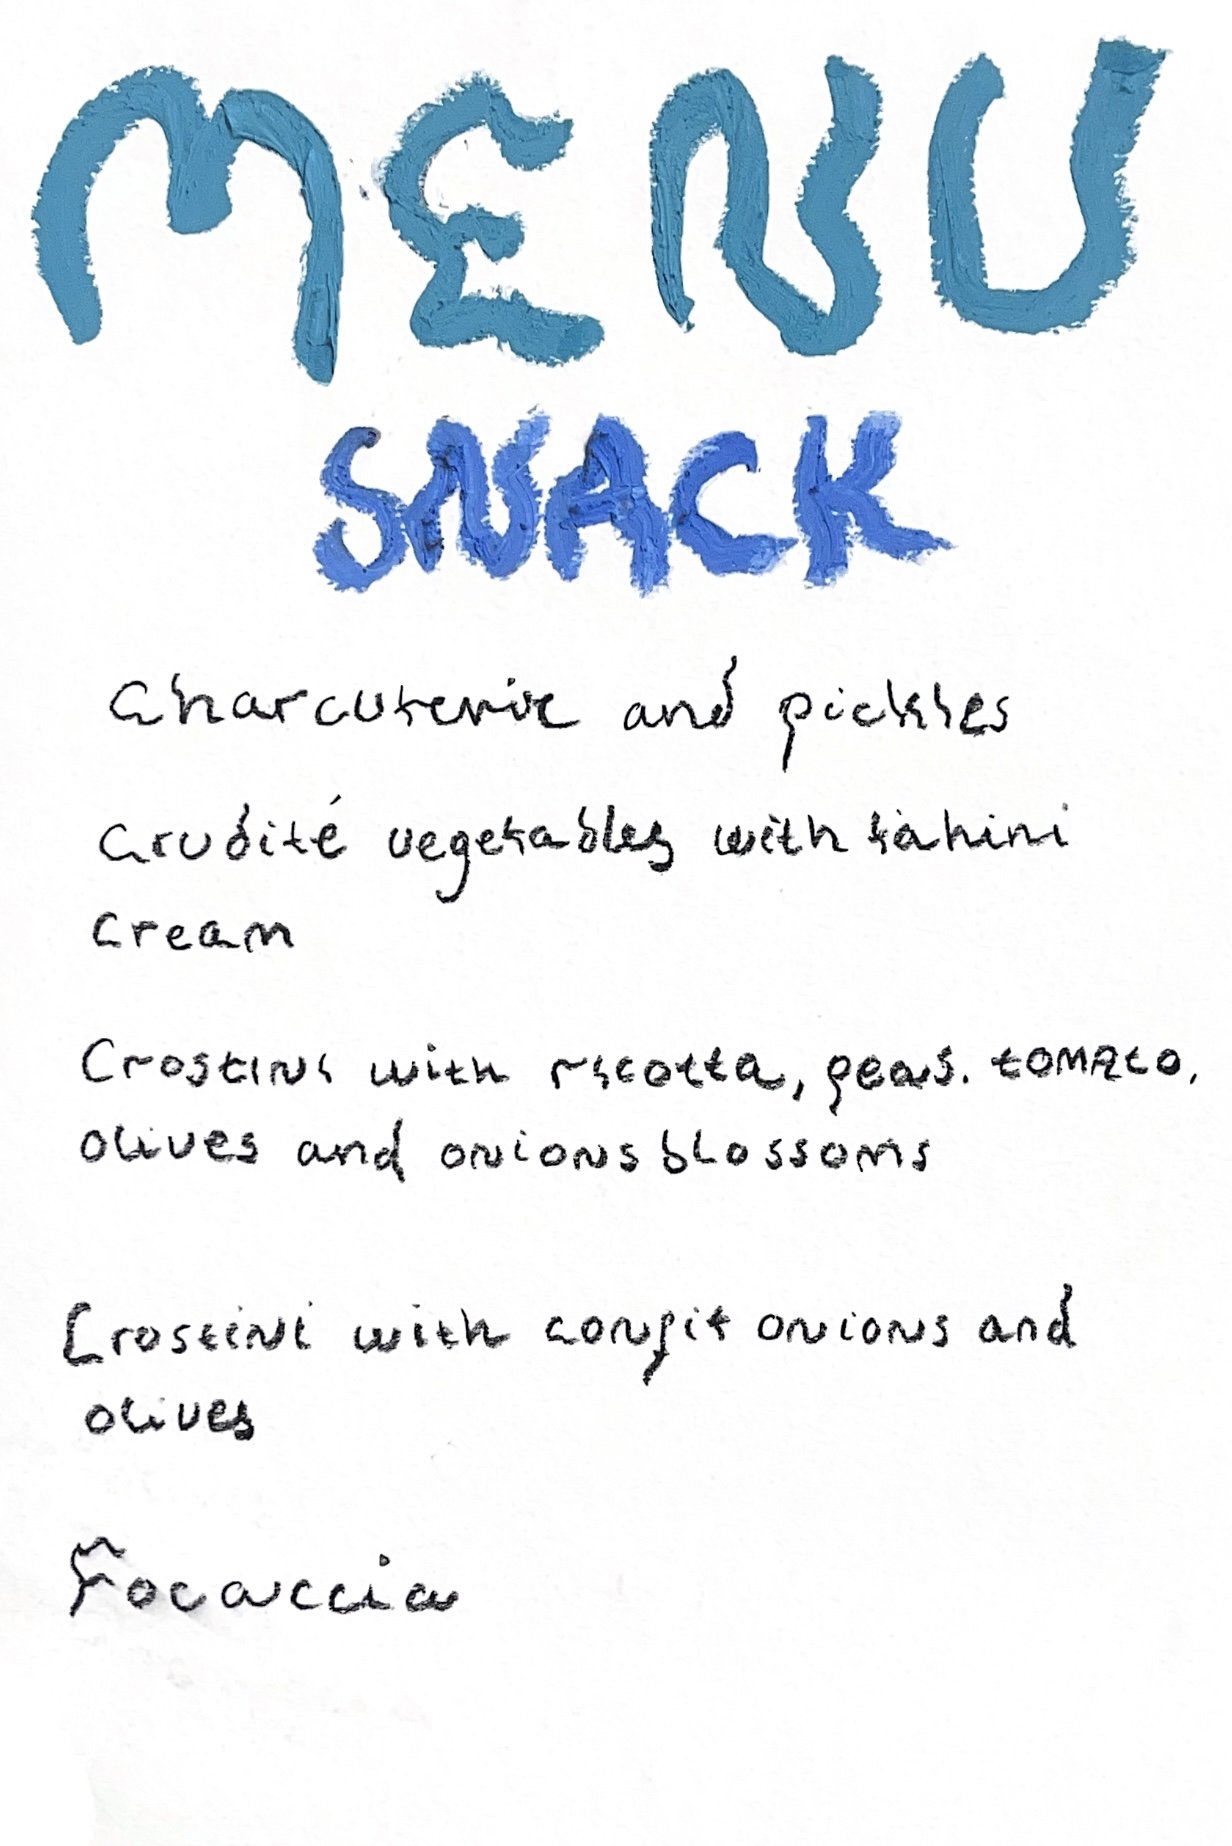 MENU
SNACK
Charcuterie and pickles
Crudité vegetables with tahini
cream
Crostini with ricotta, peas. tomato,
olives and onions blossoms
Crostini with confit onions and
olives
Focaccia